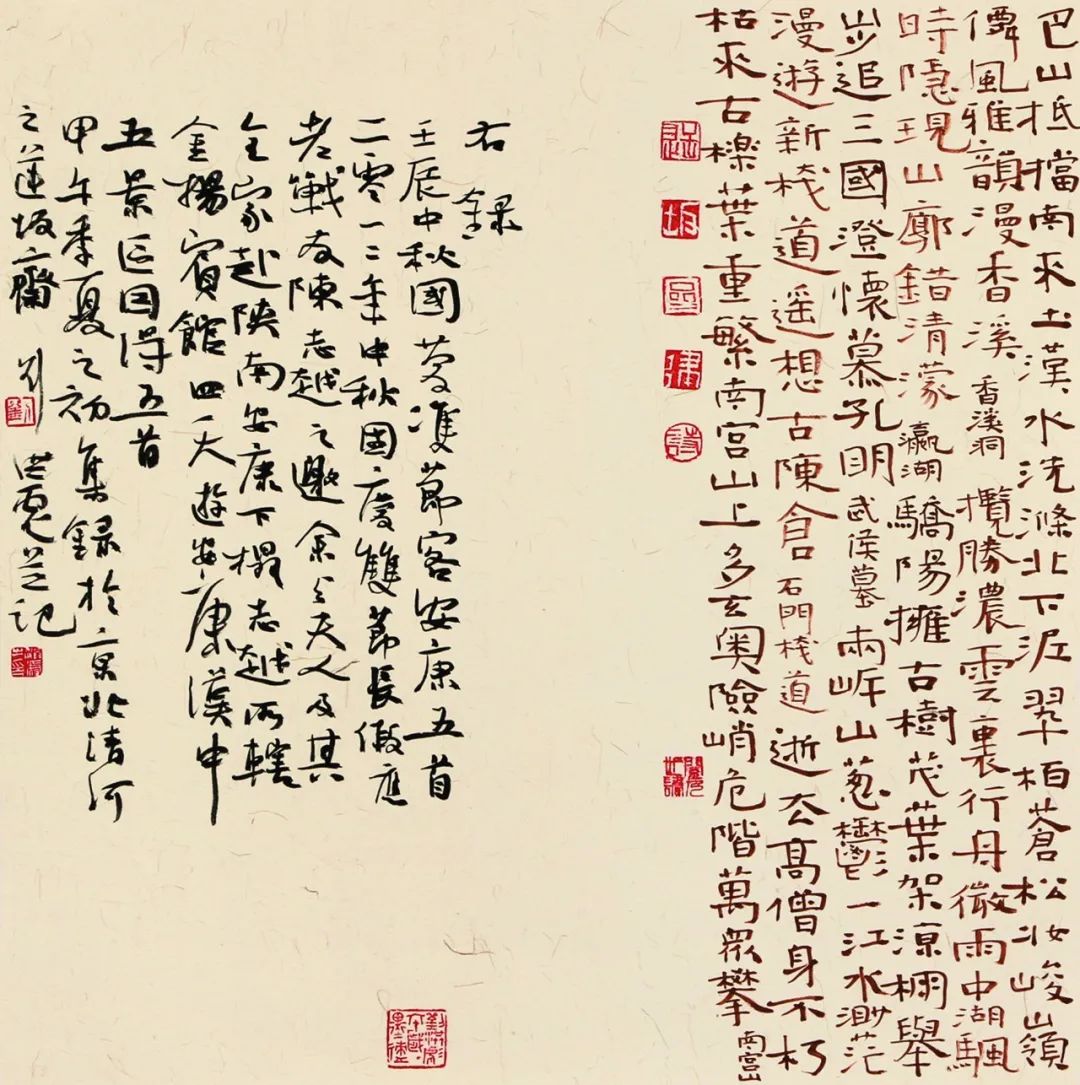 巴山抵擋南來土漢水洗滌北下泥翠柏蒼松妝峻嶺
僊風雅韻漫香溪 香溪洞 攬勝濃雲裏行舟微雨中湖颿
時隱現山廓錯清濛 瀛湖 驕陽擁古樹茂葉架涼棚舉
步追三國澄懷慕孔明 武侯墓 兩岸山蔥鬱一江水渺茫
漫遊新棧道遥想古陳倉 石門棧道 逝去高僧身不朽
枯來古櫟葉重繁南宮山上多玄奧險峭危階萬眾攀 南宮山
右錄
壬辰中秋國慶雙節客安康五首
二零一二年中秋國慶雙節長假應
老戰友陳志越之邀余与夫人及其
全家赴陝南安康下榻志越所轄
金揚賓館四天遊安康漢中
五景區因得五首
甲午季夏之初集錄於京北清河
之蓮坂齋 劉洪彪並記